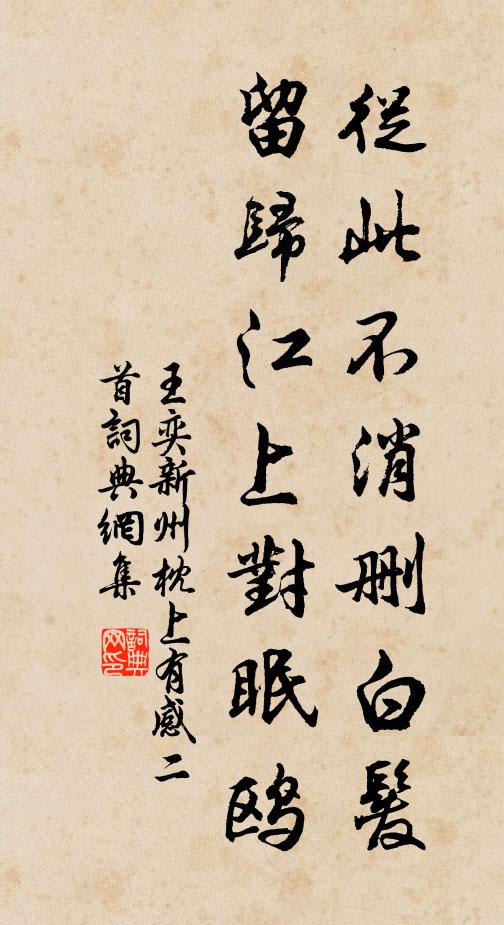 從此不消刪白髮
留歸江上對眠鷗
王奕新州枕上有感二
首詞典網集
詞典
网印